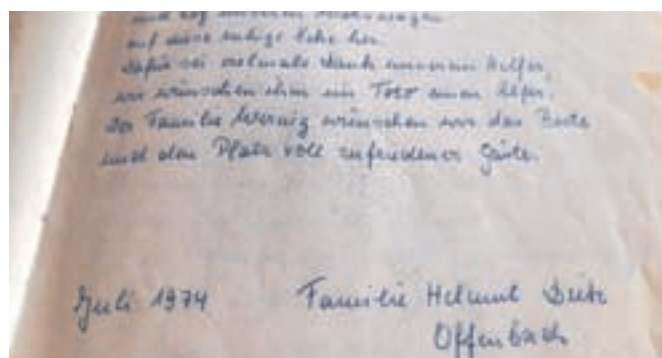 und zog unseren
auf diese ruhige Ecke hin.
Dafür sei vielmals Dank unserem Helfer,
wir wünschen ihm im Toto einen Elfer.
Der Familie Wernig wünschen wir das Beste
und den Platz voll zufriedener Gäste.
Juli 1974
Familie Helmut Dietz
Offenbach